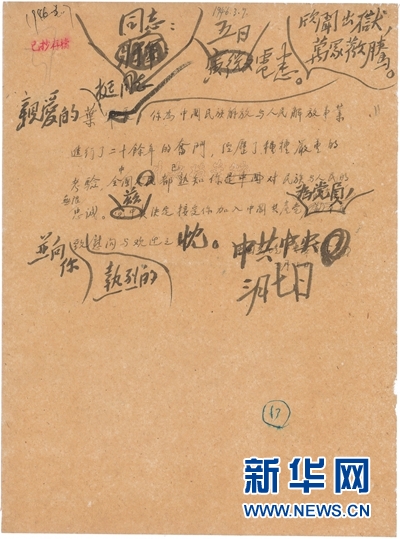 1946.3.7
已抄存档
同志：
1946.3.7.
五日
電悉。
欣聞出獄
萬眾歡騰。
親爱的葉
挺同志
你為中國民族解放与人民解放事業
進行了二十餘年的奮鬥，经歷了種種嚴重的
考验 全中國都已熟知你對民族与人民的
無限忠誠。茲決定接受你加入中國共產党為党員
並向你
致熱烈的慰问与欢迎之忱。
中共中央
三月七日
17
新华网
WWW.NEWS.CN